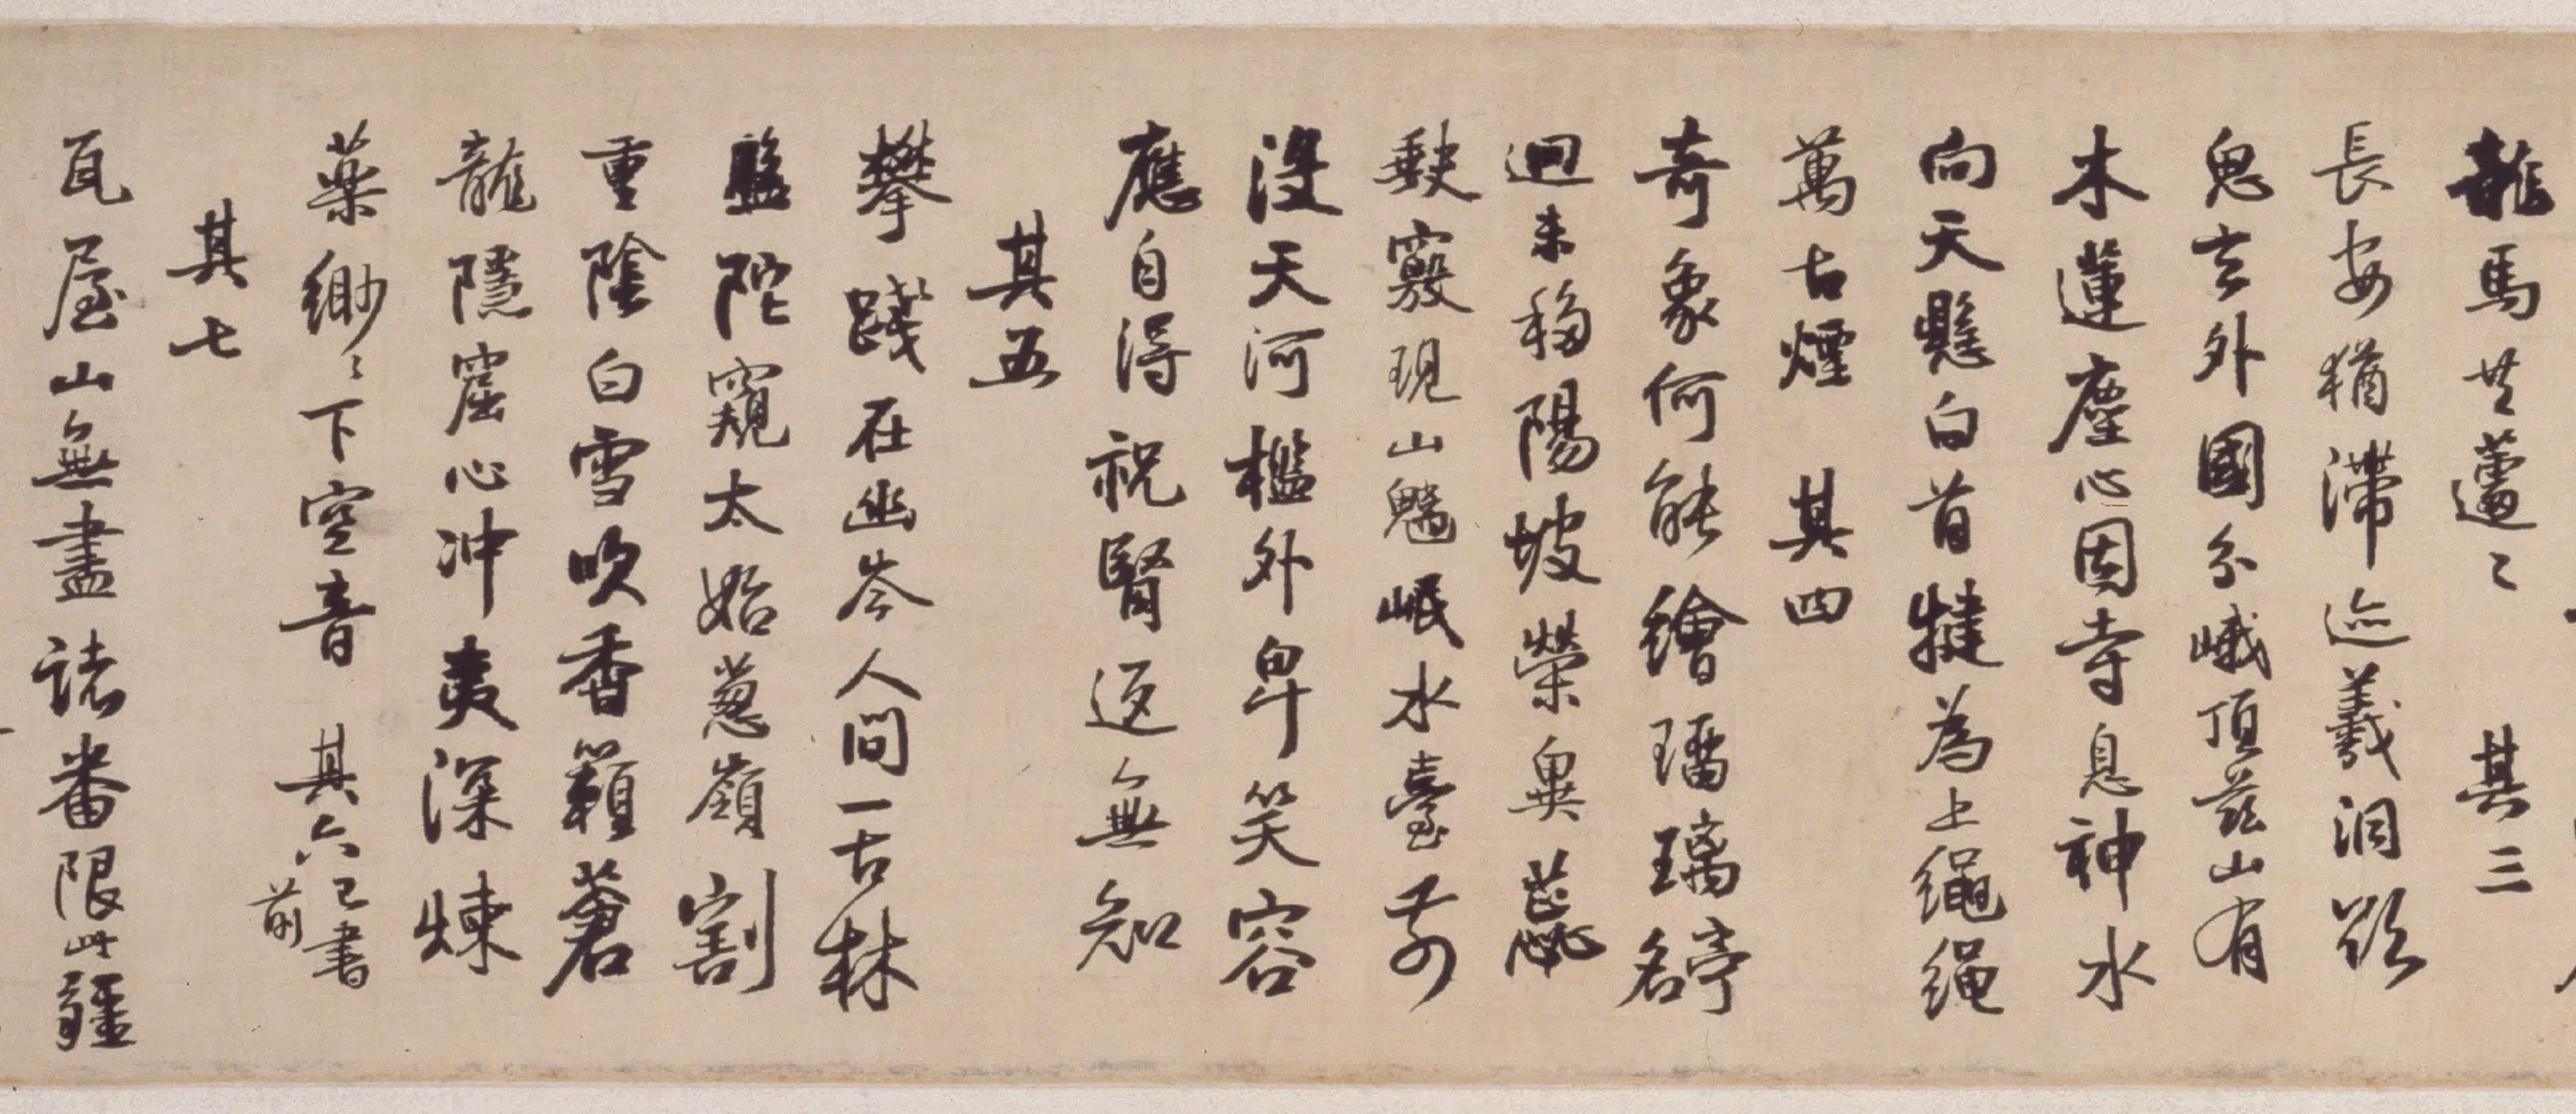 龍馬共蘧〻 其三
長安猶滯迹羲洞欲
鬼玄外國分峨頂茲山有
木蓮塵心因寺息神水
向天懸白首揵為上繩繩
萬古煙 其四
奇象何能繪璢璃竒名
迴未移陽坡榮異蕋
缺竅現山魑岷水臺前
沒天河檻外卑笑容
應自得祝腎返無知
其五
攀踐在幽岑人間一古林
盤陀窺太始蔥嶺割
重陰白雪吹香籟蒼
龍隱窟心沖夷深煉
藥緲〻下空音 其六已書前
其七
瓦屋山無盡諸番限此疆